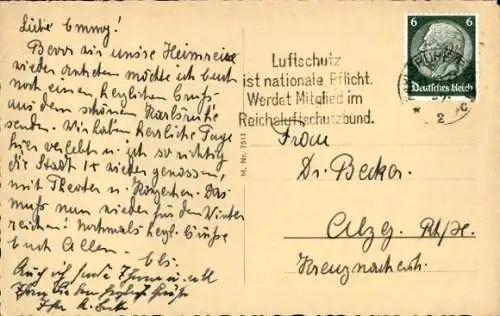 Liebe Emmy!
Bevor wir unsre Heimreise
wieder antreten möchte ich Euch
noch einen herzlichen Gruß
aus dem schönen Karlsruhe
senden. Wir haben herrliche Tage
hier verlebt u. ich so richtig
die Stadt wieder genossen,
mit Theater u. Konzerten. Das
muß nun wieder für den Winter
reichen! Nochmals herzl. Grüße
Euch Allen. Els.
Auch ich sende Ihnen u. all
6 6
Deutsches Reich
Luftschutz
ist nationale Pflicht.
Werdet Mitglied im
Reichsluftschutzbund.
M. Nr. 7511
Frau
Dr. Becker.
Alzey. Rhh.
Kreuznacherstr.